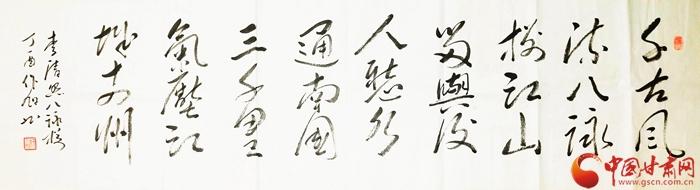 千古风
流八咏
楼江山
留与后
人愁水
通南国
三千里
气壓江
城十四州
李清照八咏楼
丁酉作旭书
中国甘肃网
www.gscn.com.cn